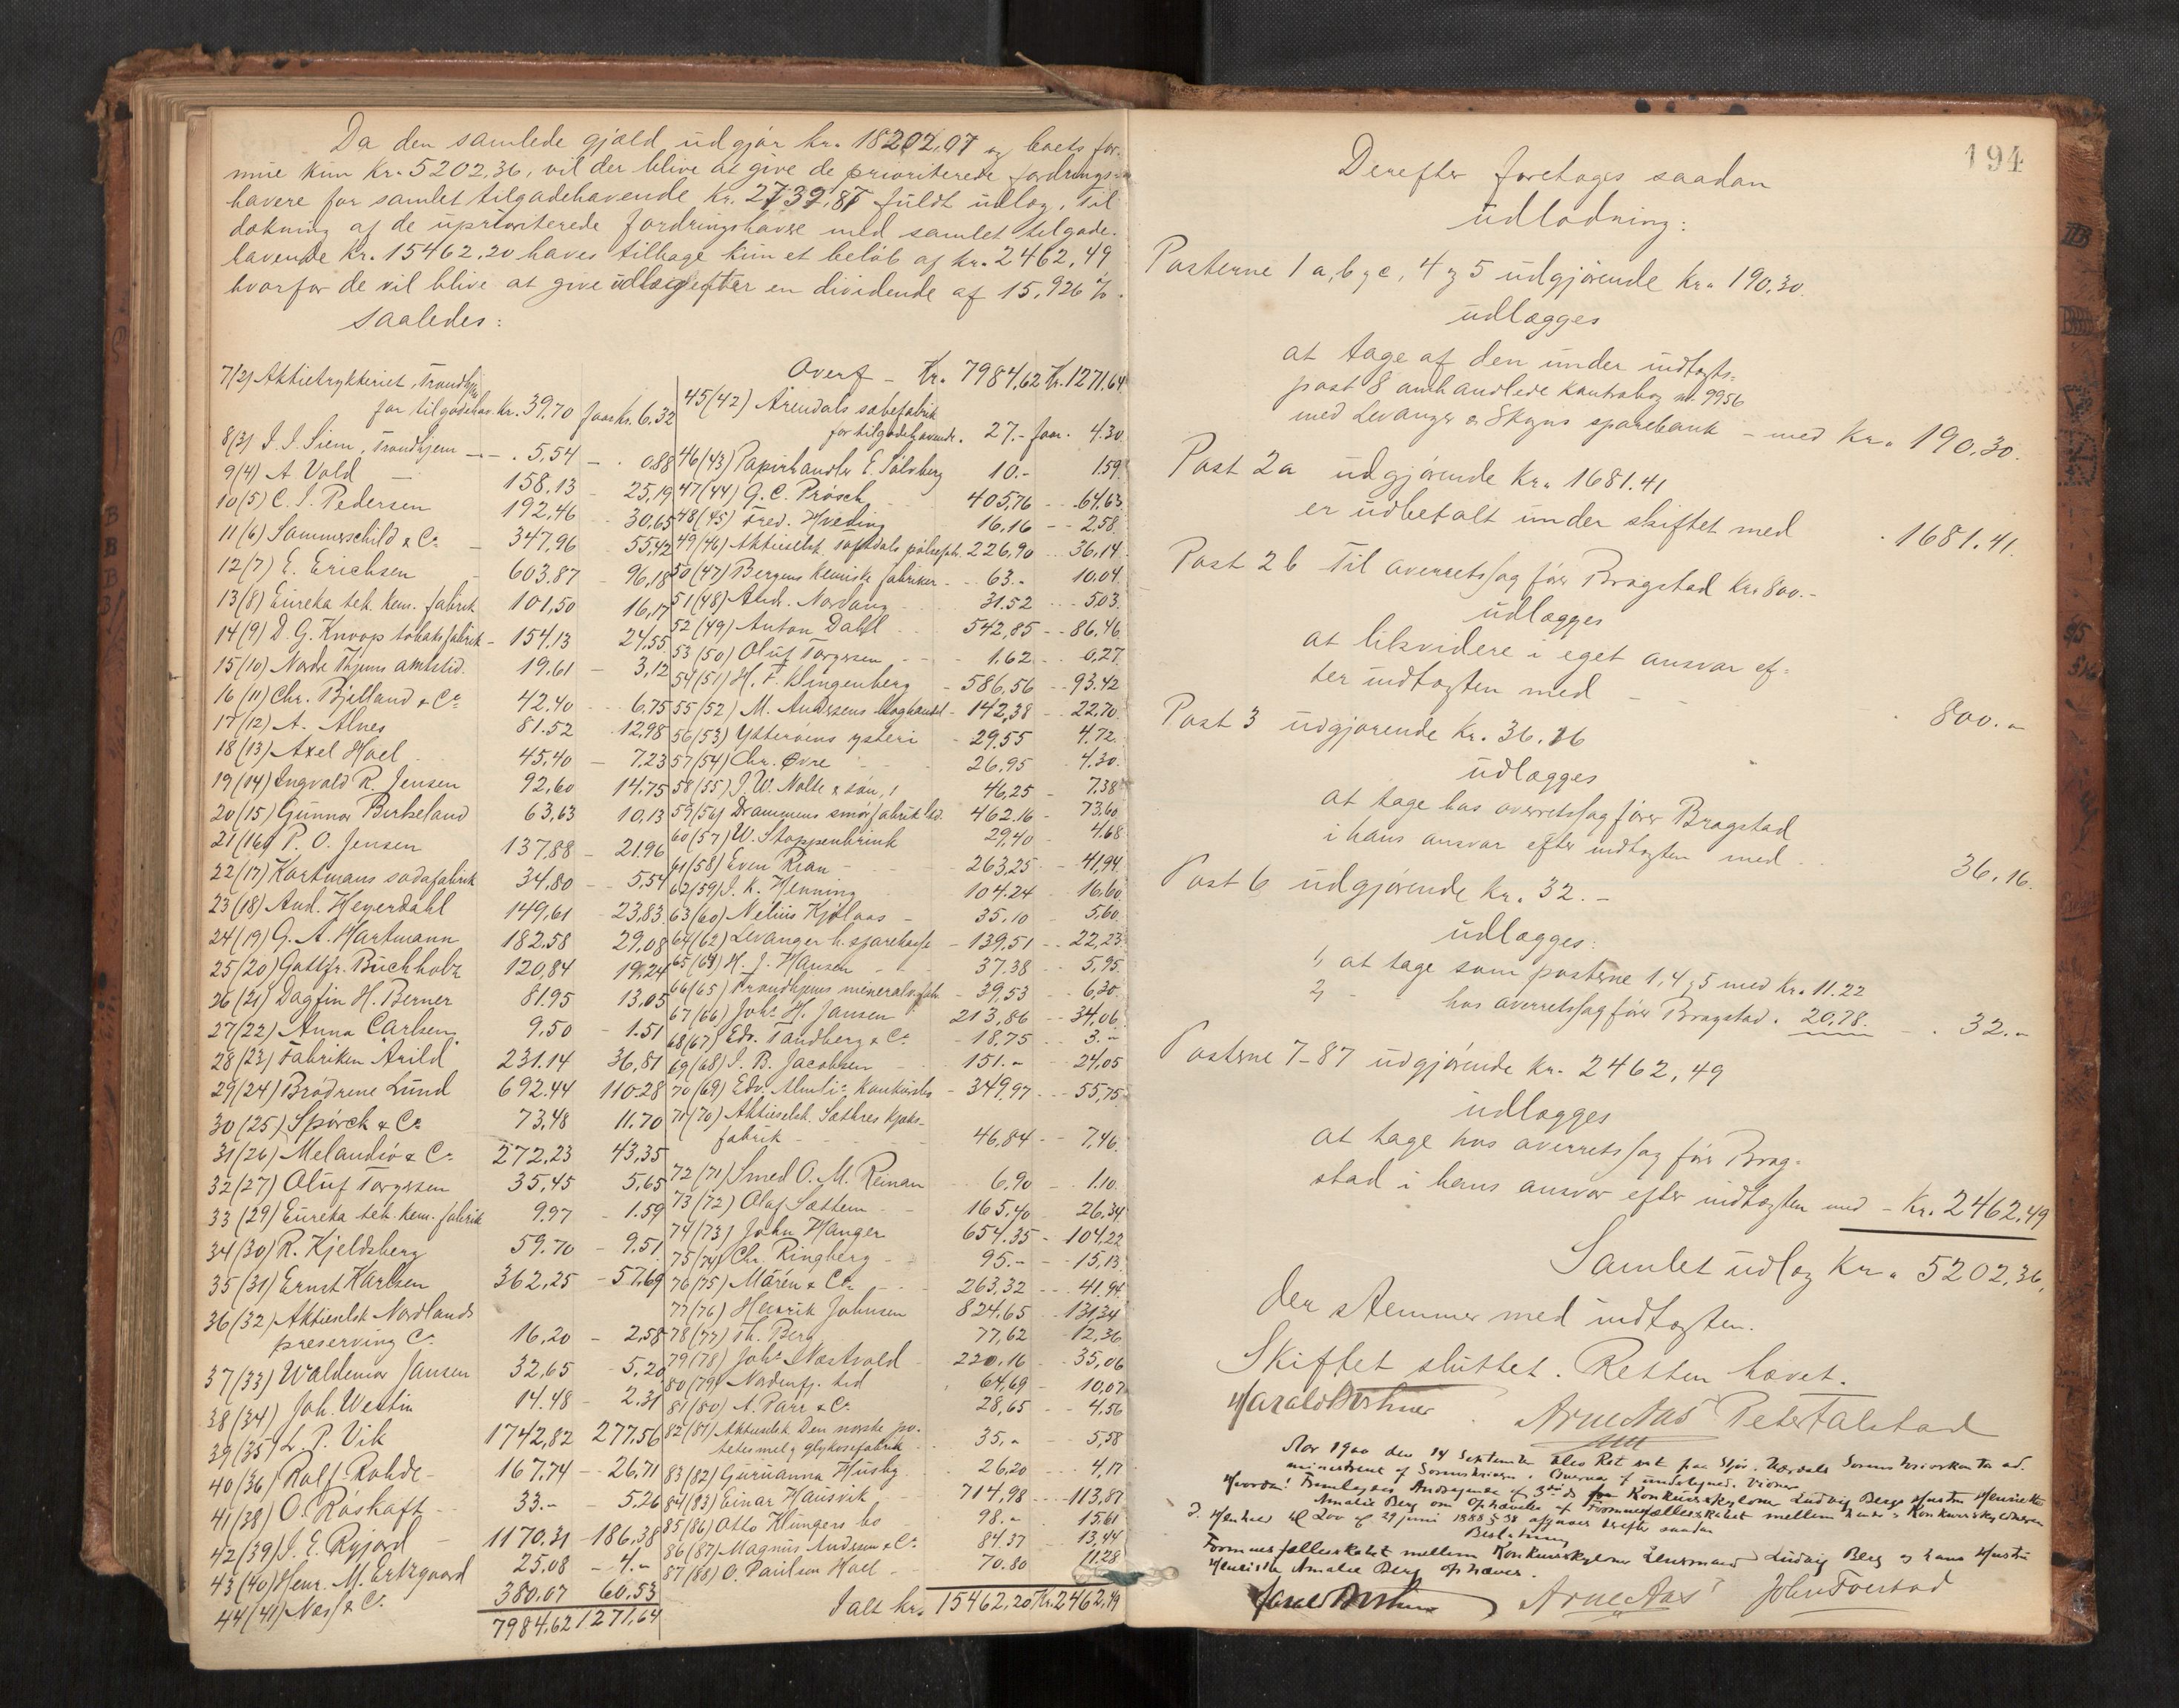 Da den samlede gjæld udgjör kr. 18202,07 og boets for-
mue kun kr. 5202,36, vil der blive at give de prioriterede fordrings-
havere for samlet tilgodehavende kr. 2739,87 fuldt udlæg. Til
dækning af de uprioriterede fordringshavere med samlet tilgode-
havende kr. 15462,20 haves tilbage kun et beløb af kr. 2462,49
hvorfor de vil blive at give udlæg efter en dividende af 15,926 %
saaledes:
7/(2) Aktietrykkeriet, Trondhjem
for tilgodehav. kr. 39.70 faar kr. 6.32
8/(3) I. I. Siem, Trondhjem - 5.54 - 0.88
9/(4) A Vold - 158.13 - 25,19
10/(5) C. I. Pedersen 192,46 - 30,65
11/(6) Sommerschild & Co 347,96 55,42
12/(7) E. Erichsen 603.87 - 96,18
13/(8) Eureka tek. kem. fabrik 101,50 16,17
14/(9) D. G. Knoop tobaksfabrik - 154.13 24,55
15/(10) Nordre Thjems amtstid. 19.61 - 3,12
16/(11) Chr. Bjelland & Co 42,40 - 6.75
17/(12) A. Alnes 81.52 12,98
18/(13) Axel Hoel 45,40 - 7.23
19/(14) Ingvald R. Jensen 92,60 14.75
20/(15) Gunnar Birkeland 63,63 10,13
21/(16) P. O. Jensen 137,88 - 21.96
22/(17) Kortmans sodafabrik 34,80 - 5,54
23/(18) And. Heyerdahl 149,61 - 23,83
24/(19) G. A. Hartmann 182.58 29,08
25/(20) Gottfr. Buchholz 120,84 19,24
26/(21) Dagfin H. Berner 81.95 13.05
27/(22) Anna Carlsen 9.50 - 1.51
28/(23) Fabriken Arild 231.14 36,81
29/(24) Brødrene Lund 692.44 110.28
30/(25) Spörck & Co 73,48 11.70
31/(26) Melandsö & Co 272,23 43,35
32/(27) Oluf Torgersen 35,45 5,65
33/(29) Eureka tek. kem. fabrik 9.97 - 1.59
34/(30) R. Kjeldsberg 59.70 - 9.51
35/(31) Ernst Karlsen 362,25 - 57,69
36/(32) Aktieselsk Nordlands
preserving Co 16,20 - 2,58
37/(33) Waldemar Jansen 32,65 5,20
38/(34) Joh. Westin 14.48 - 2.31
39/(35) L. P. Vik 1742,82 277,56
40/(36) Rolf Rohde - 167,74 - 26.71
41/(38) O. Röskaft - 33.- 5.26
42/(39) J. E. Ryjord - 1170.31 - 186,38
43/(40) Henr. M. Ertzgaard 25.08 - 4.-
44/(41) Næss & Co 380.07 60.53
7984,62 1271,64
Overf - Kr. 7984,62 Kr. 1271.64
45/(42) Arendals sæbefabrik
for tilgodehavende. 27.- faar. 4.30
46/(43) Papirhandler E. Sølsberg 10.- 1.59
47/(44) G. C. Prösch 405,76 - 64,63
48/(45) Fred. Hveding 16,16 - 2.58
49/(46) Aktieselsk. Toftdals pølsefab. 226,90 36,14
50/(47) Bergens kemiske fabriker - 63.- 10.04
51/(48) And. Nordang 31.52 - 5,03
52/(49) Anton Dahl 542,85 - 86.46
53/(50) Oluf Torgersen - 1.62 - 0,27
54/(51) H. F. Klingenberg - 586,56 - 93.42
55/(52) M. Andersens boghandel - 142,38 - 22,70
56/(53) Ytterøens ysteri - 29,55 4.72
57/(54) Chr. Øvre - 26,95 - 4.30
58/(55) I. W. Nolte & søn, 46,25 - 7,38
59/(56) Drammens smørfabrik lid. 462.16 - 73,60
60/(57) W. Stoppenbrink 29,40 - 4.68
61/(58) Even Rian - 263,25 41,94
62/(59) I. K. Henning 104.24 - 16.60
63/(60) Nelius Kjølaas - 35.10 - 5,60
64/(62) Levanger h. sparekasse - 139,51 - 22,23
65/(64) H. J. Hansen 37.38 - 5,95
66/(65) Trondhjems mineralv.fabr. - 39,53 - 6,30
67/(66) Johs H. Jansen 213,86 - 34,06
68/(67) Edv. Tandberg & Co - 18,75 - 3.-
69/(68) I. B. Jacobsen 151.- - 24,05
70/(69) Edv. konkursbo - 349,97 - 55,75
71/(70) Aktieselsk. Sætres kjæks-
fabrik - 46,84 - 7,46
72/(71) Smed O. M. Reinan 6.90 - 1.10
73/(72) Olaf Sættem 165,40 26,34
74/(73) John Hanger 654.35 - 104,22
75/(74) Chr. Ringberg - 95.- - 15,13
76/(75) Mären & Co 263,32 - 41,94
77/(76) Henrik Johnsen 824,65 - 131,34
78/(77) Th. Berg 77,62 12,36
79/(78) Johs Næstvold 220,16 - 35,06
80/(79) Nordenfj. tid 64,69 - 10,07
81/(80) A. Parr & Co 28,65 - 4,56
82/(81) Aktieselsk Den norske po-
tetesmel & glykosefabrik - 35,- 5,58
83/(82) Gurianna Husby 26.20 4,17
84/(83) Einar Hausvik 714,98 - 113,87
85/(86) Otto Klüngers bo 98.- 15,61
86/(87) Magnus Andersen & Co 84.37 13,44
87/(88) O. Paulsen Hoel 70.80 11.28
I alt kr. 15462,20 Kr. 2462,49
194
Derefter foretoges saadan
udlodning:
Posterne 1 a, b & c, 4 & 5 udgjörende kr. 190.30.
udlægges
at tage af den under indtægts-
post 8 omhandlede kontrabog nr. 9956
med Levanger & Skogns sparebank - med kr. 190.30.
Post 2a udgjörende kr. 1681.41
er udbetalt under skiftet med 1681.41.
Post 2 b Til overretssagfører Bragstad kr. 800.-
udlægges
at likvidere i eget ansvar ef-
ter indtægten med - 800.-
Post 3 udgjörende kr. 36.16
udlægges
at tage hos overretssagfører Bragstad
i hans ansvar efter indtægten med 36.16.
Post 6 udgjørende kr. 32.-
udlægges:
1, at tage som posterne 1, 4 & 5 med kr. 11.22
2, - hos overretssagfører Bragstad. 20,78. 32.-
Posterne 7-87 udgjørende kr. 2462,49
udlægges
at tage hos overretssagfører Brag-
stad i hans ansvar efter indtægten med - kr. 2462,49
Samlet udlæg kr. 5202,36,
der stemmer med indtægten.
Skiftet sluttet. Retten hævet.
Arne Aas Peter Falstad
Aar 1900 den 14 September blev Ret sat paa Stjør- Værdals Sorenskriverkontor ad-
ministreret af Sorenskriveren. Overvær af undertegnede Vidner
Hvorda: Fremlagdes Andragende af 3die ds fra Konkursskyldner Ludvig Bergs Hustru Henrikke
Amalie Berg om Ophævelse af Formuesfællesskabet mellem hende & Konkursskyldneren
I Henhold til Lov af 29 juni 1888 § 38 afgaves derefter saadan
Beslutning
Formuesfællesskabet mellem Konkursskyldner Lensmand Ludvig Berg og hans Hustru
Henrikke Amalie Berg ophæves.
Arne Aas John Forstad